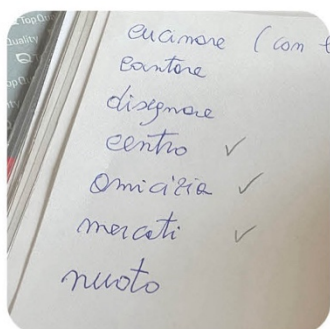 cucinare (con
cantare
disegnare
centro ✓
amicizia ✓
mercati ✓
nuoto
Top Qu
Quality